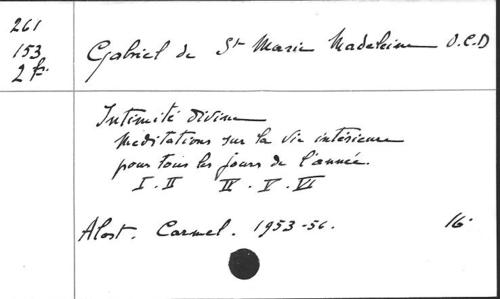 261
153
2 f.
Gabriel de St Marie Madeleine O.C.D
Intimité divine
Méditations sur la vie intérieure
pour tous les jours de l'année.
I. II IV. V. VI
Alost. Carmel. 1953-56. 16°